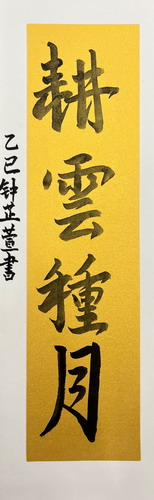 耕雲種月
乙巳钟芷萱書